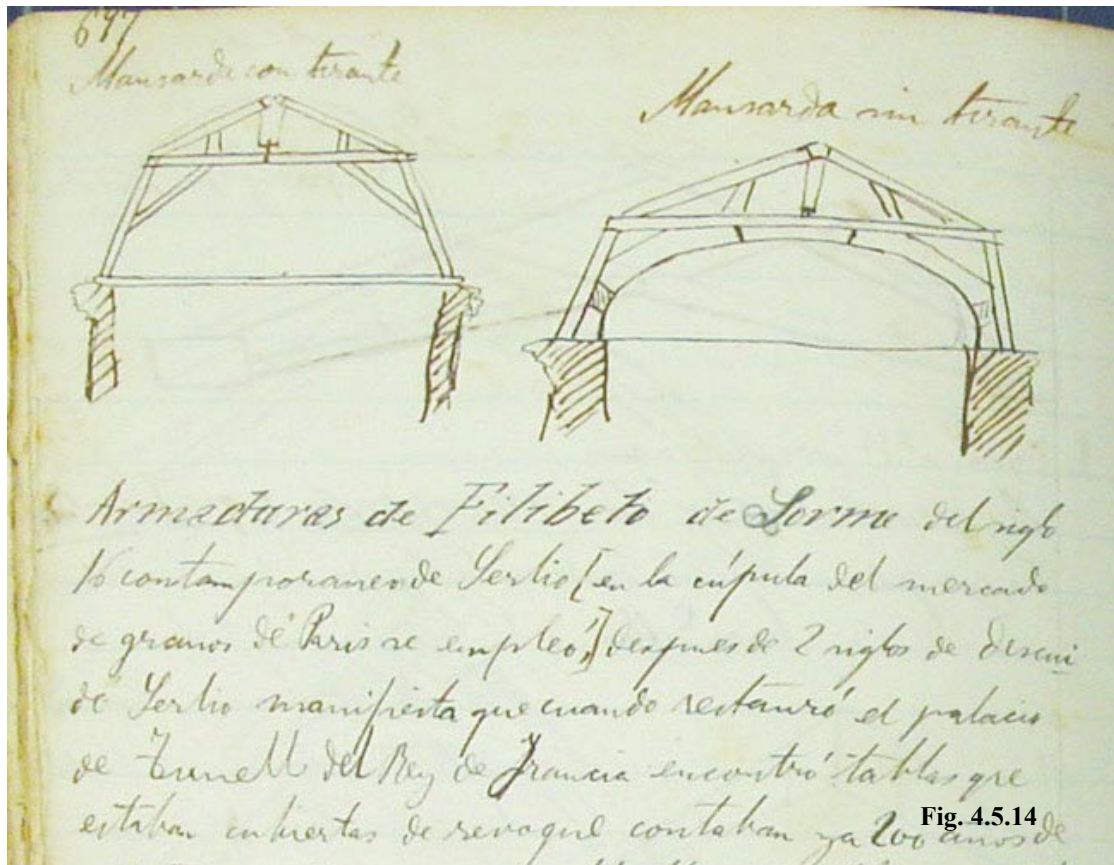 697
Mansarda con tirante
Mansarda sin tirante
Armaduras de Filibeto de Lorme del siglo
16 contemporaneo de Serlio [en la cúpula del mercado
de granos de Paris se empleó,] despues de 2 siglos de descui
do Serlio manifiesta que cuando restauró el palacio
de del Rey de Francia encontró tablas que
estaban cubiertas de revoque contaban ya 200 años de
Fig. 4.5.14